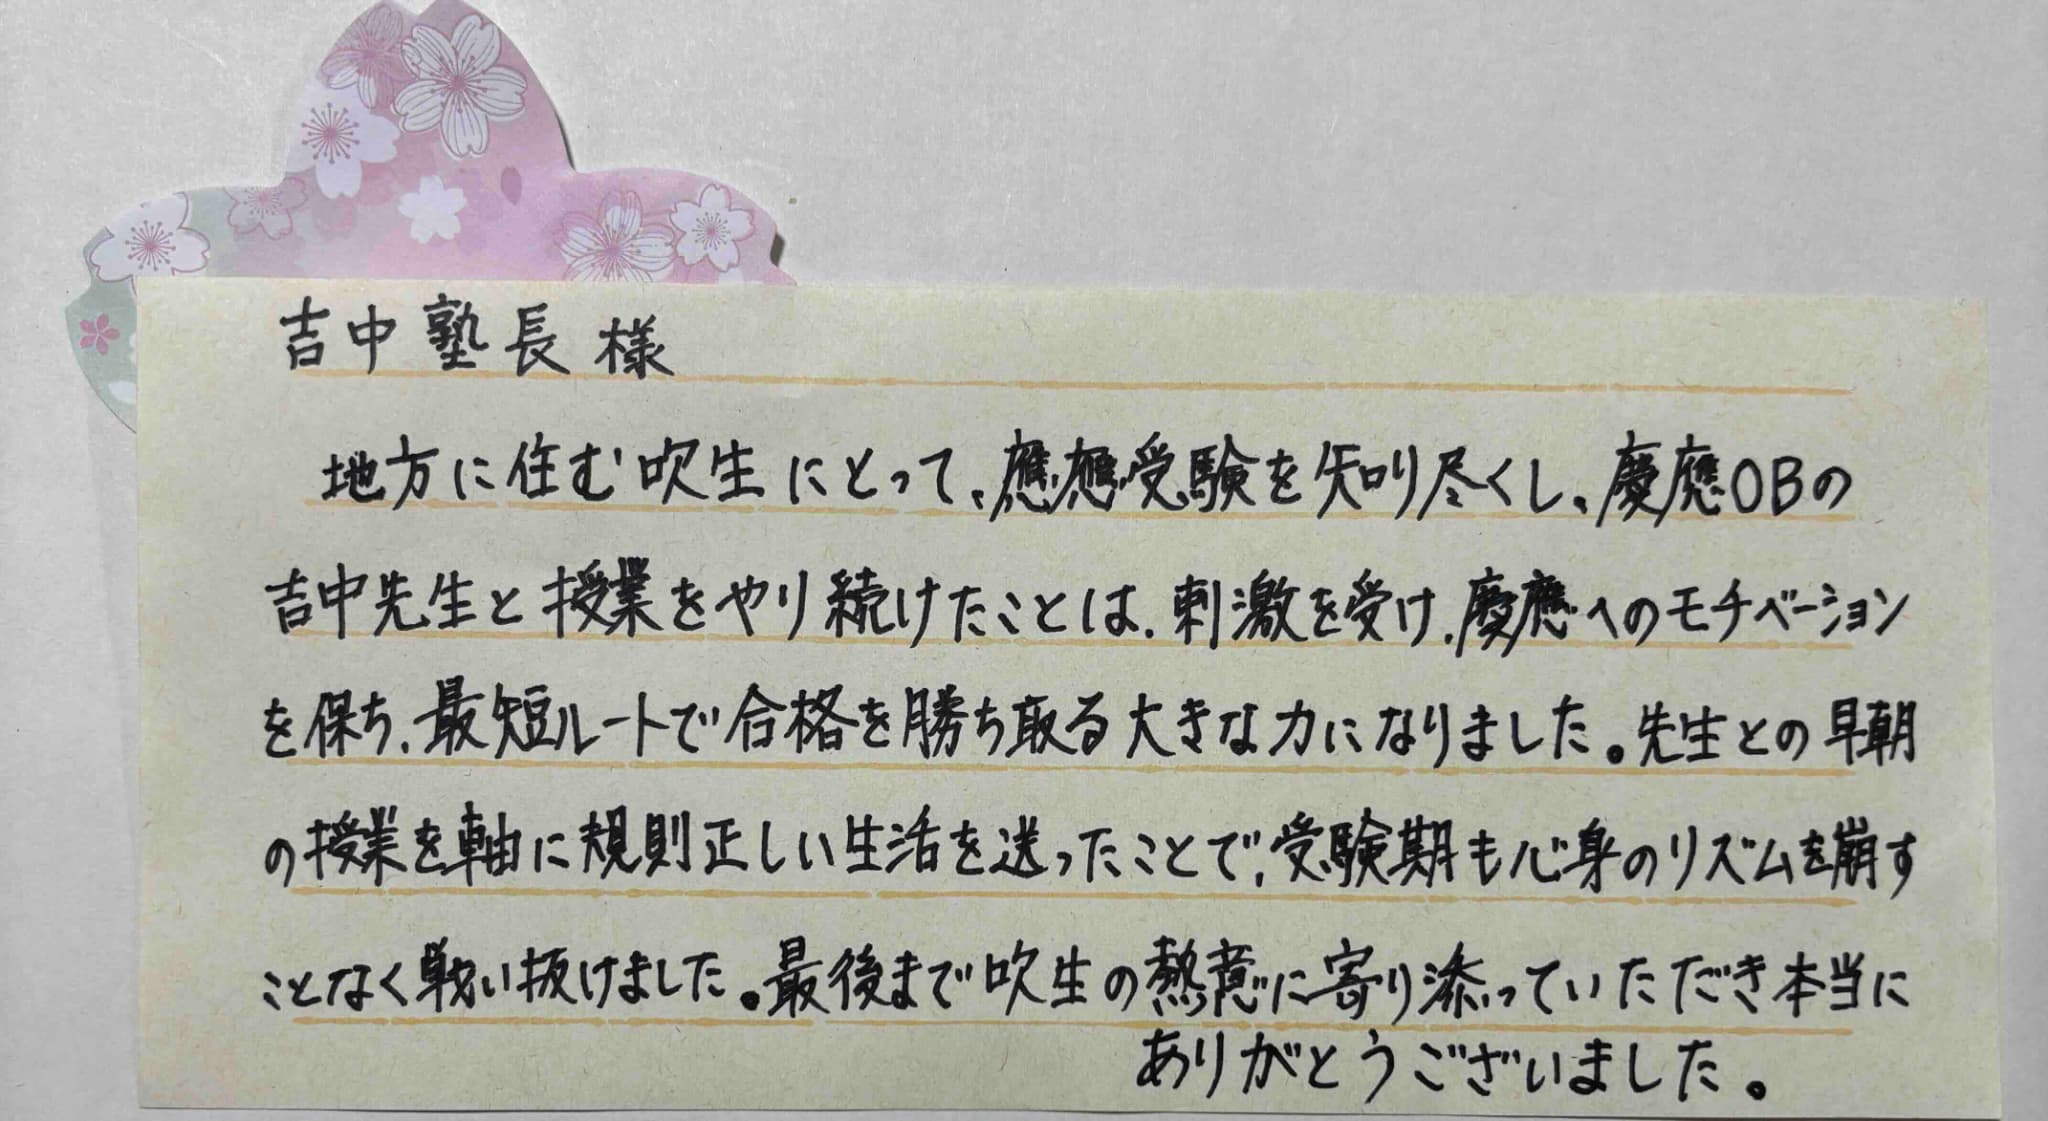 吉中塾長様
地方に住む吹生にとって、應應受験を知り尽くし、慶應OBの
吉中先生と授業をやり続けたことは、刺激を受け、慶應へのモチベーション
を保ち、最短ルートで合格を勝ち取る大きな力になりました。先生との早朝
の授業を軸に規則正しい生活を送ったことで、受験期も心身のリズムを崩す
ことなく戦い抜けました。最後まで吹生の熱意に寄り添っていただき本当に
ありがとうございました。